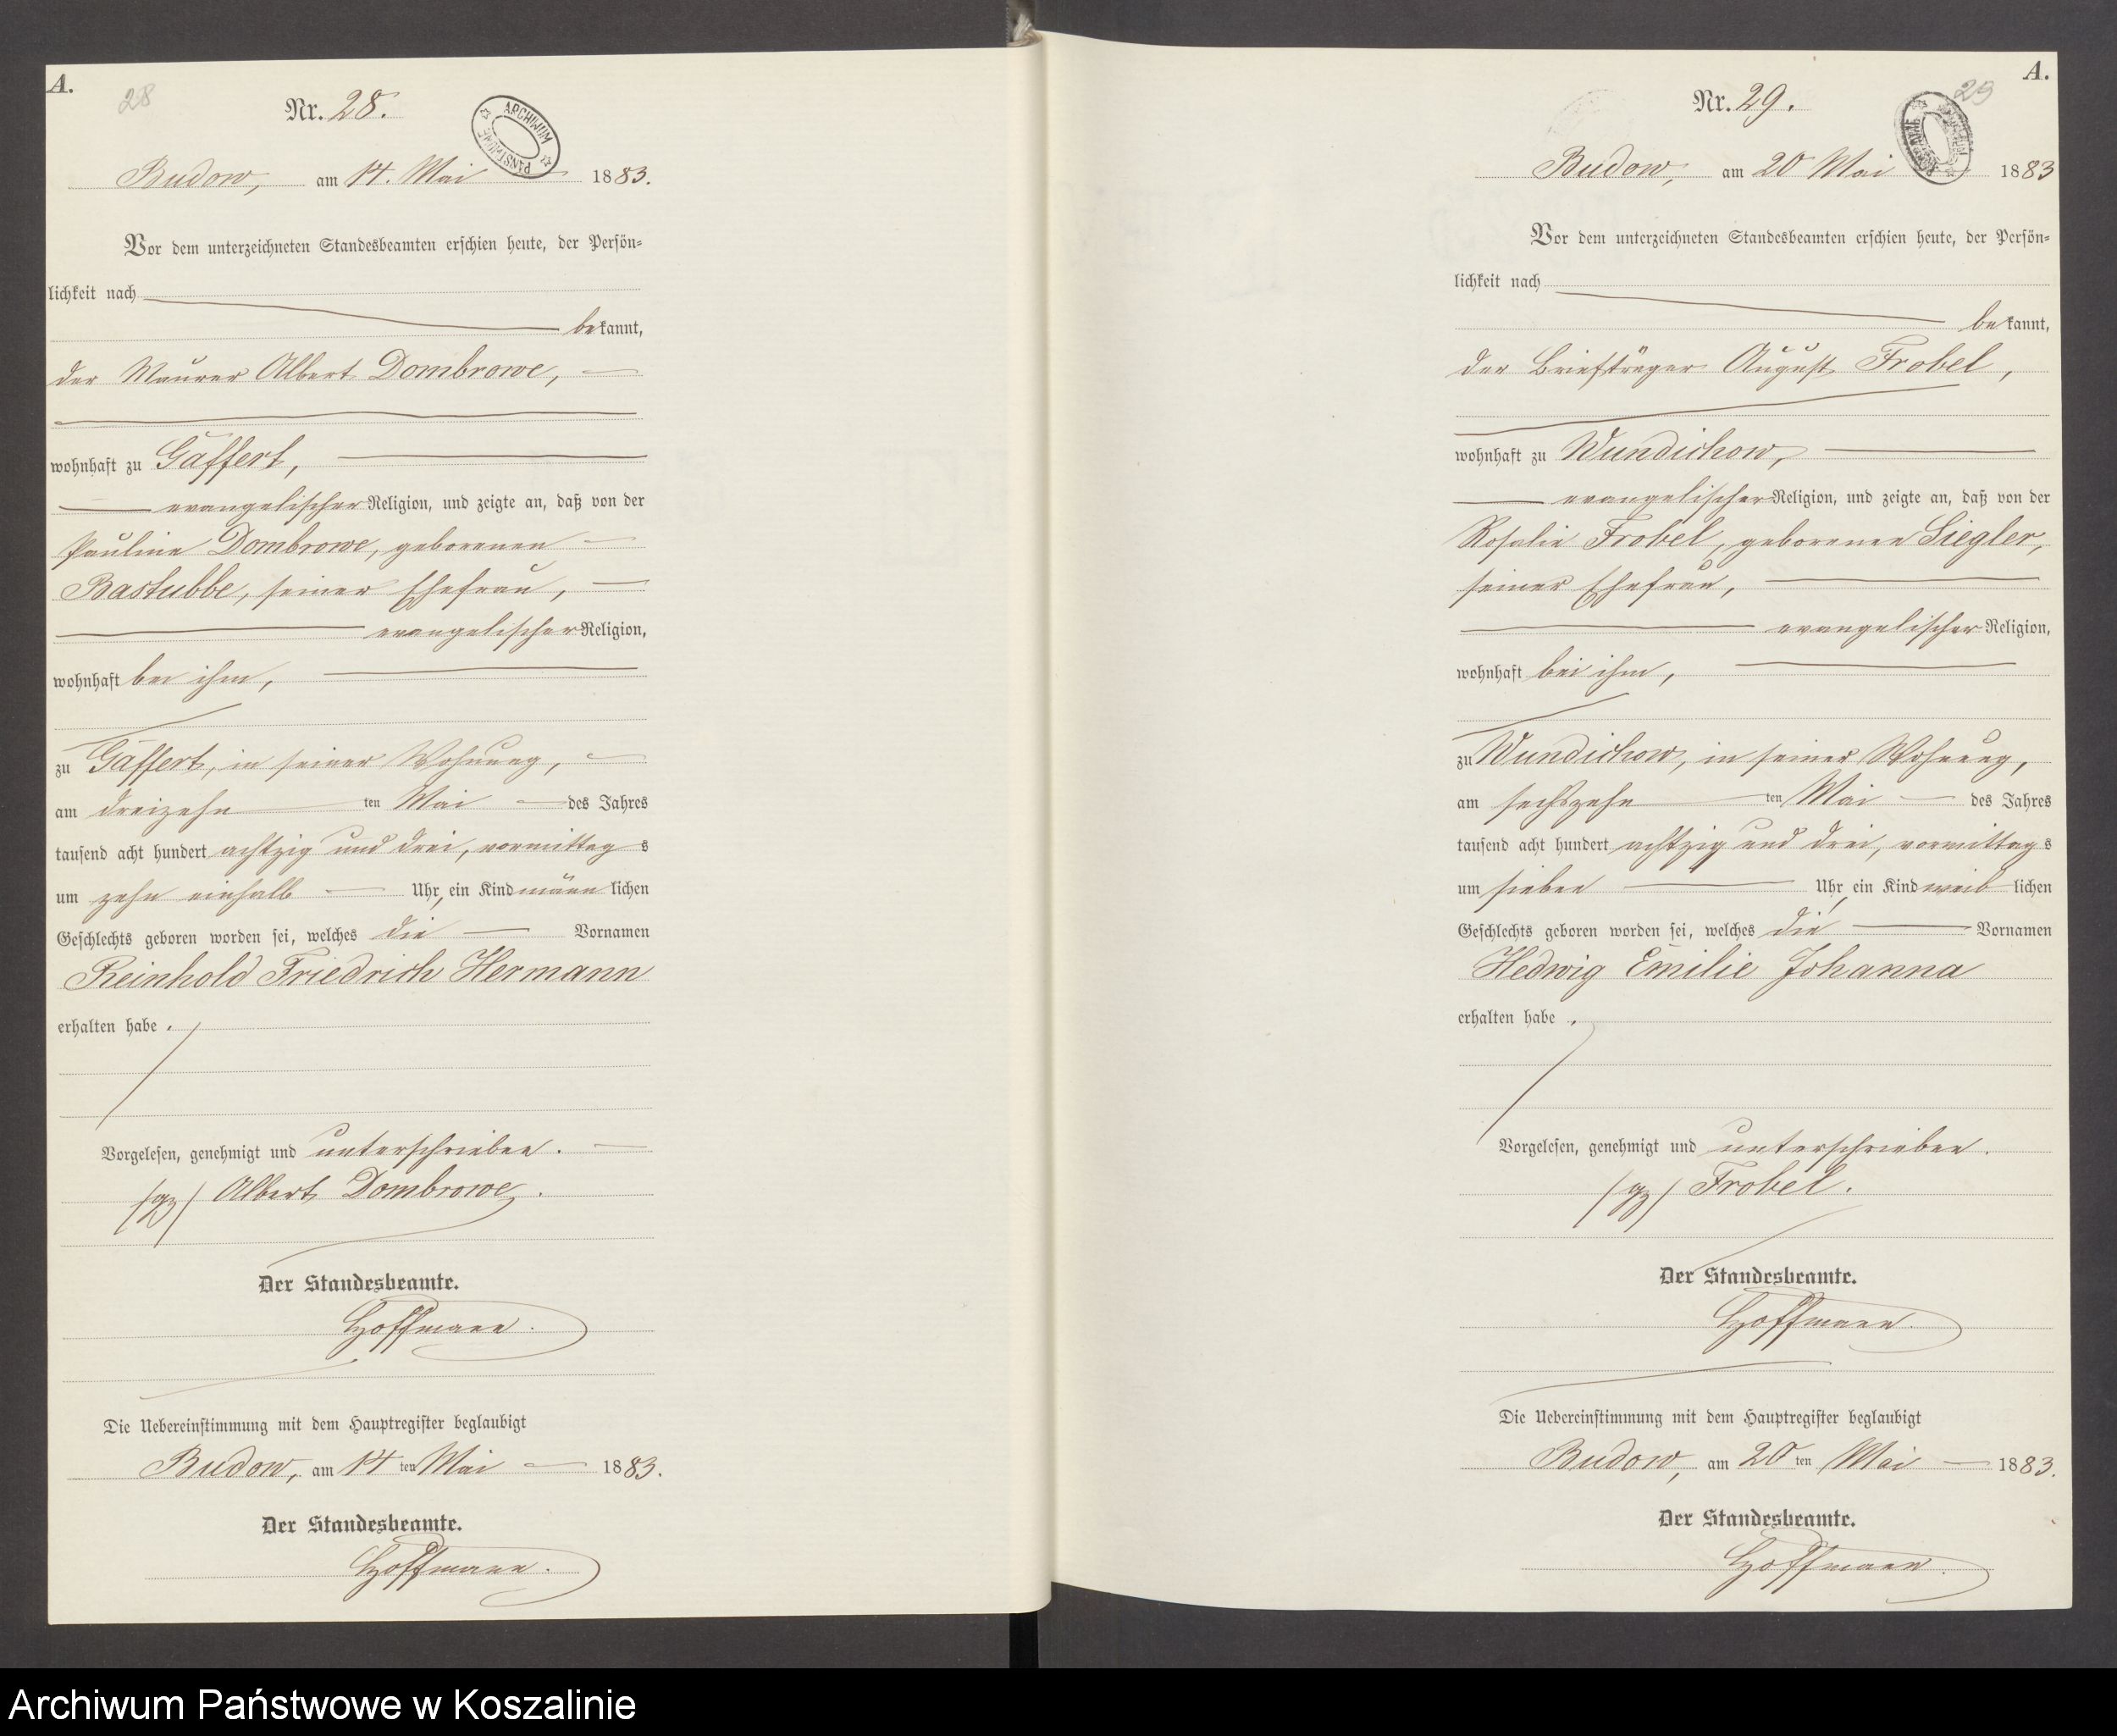 A.
28
Nr. 28.
ARCHIWUM PAŃSTWOWE
Budow, am 14. Mai 1883.
Vor dem unterzeichneten Standesbeamten erschien heute, der Persön-
lichkeit nach
bekannt,
der Maurer Albert Dombrowe,
wohnhaft zu Gaffert,
evangelischer Religion, und zeigte an, daß von der
Pauline Dombrowe, geborenen
Bastubbe, seiner Ehefrau,
evangelischer Religion,
wohnhaft bei ihm,
zu Gaffert, in seiner Wohnung,
am dreizehn ten Mai des Jahres
tausend acht hundert achtzig und drei, vormittags
um zehn einhalb Uhr, ein Kind männlichen
Geschlechts geboren worden sei, welches die Vornamen
Reinhold Friedrich Hermann
erhalten habe.
Vorgelesen, genehmigt und unterschrieben.
/gz/ Albert Dombrowe.
Der Standesbeamte.
Hoffmann.
Die Uebereinstimmung mit dem Hauptregister beglaubigt
Budow, am 14 ten Mai 1883.
Der Standesbeamte.
Hoffmann.
A.
29
Nr. 29.
Budow, am 20 Mai 1883
Vor dem unterzeichneten Standesbeamten erschien heute, der Persön-
lichkeit nach
bekannt,
der Briefträger August Frobel,
wohnhaft zu Wundichow,
evangelischer Religion, und zeigte an, daß von der
Rosalie Frobel, geborenen Siegler,
seiner Ehefrau,
evangelischer Religion,
wohnhaft bei ihm,
zu Wundichow, in seiner Wohnung,
am sechszehn ten Mai des Jahres
tausend acht hundert achtzig und drei, vormittags
um sieben Uhr, ein Kind weiblichen
Geschlechts geboren worden sei, welches die Vornamen
Hedwig Emilie Johanna
erhalten habe.
Vorgelesen, genehmigt und unterschrieben.
/gz/ Frobel.
Der Standesbeamte.
Hoffmann.
Die Uebereinstimmung mit dem Hauptregister beglaubigt
Budow, am 20 ten Mai 1883.
Der Standesbeamte.
Hoffmann.
Archiwum Państwowe w Koszalinie